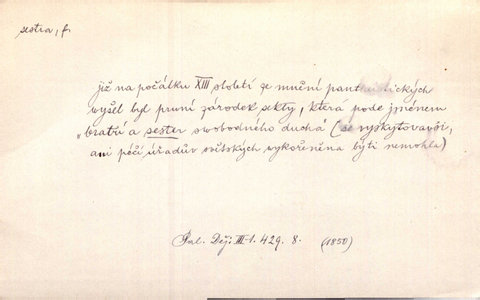 sestra, f.
již na počátku XIII století ze mnění pantheistických
vyšel byl první zárodek sekty, která pode jménem
„bratří a sester swobodného ducha" (se vyskytovavši,
ani péčí úřadův světských vykořeněna býti nemohla)
Pal. Děj. III-1. 429. 8. (1850)